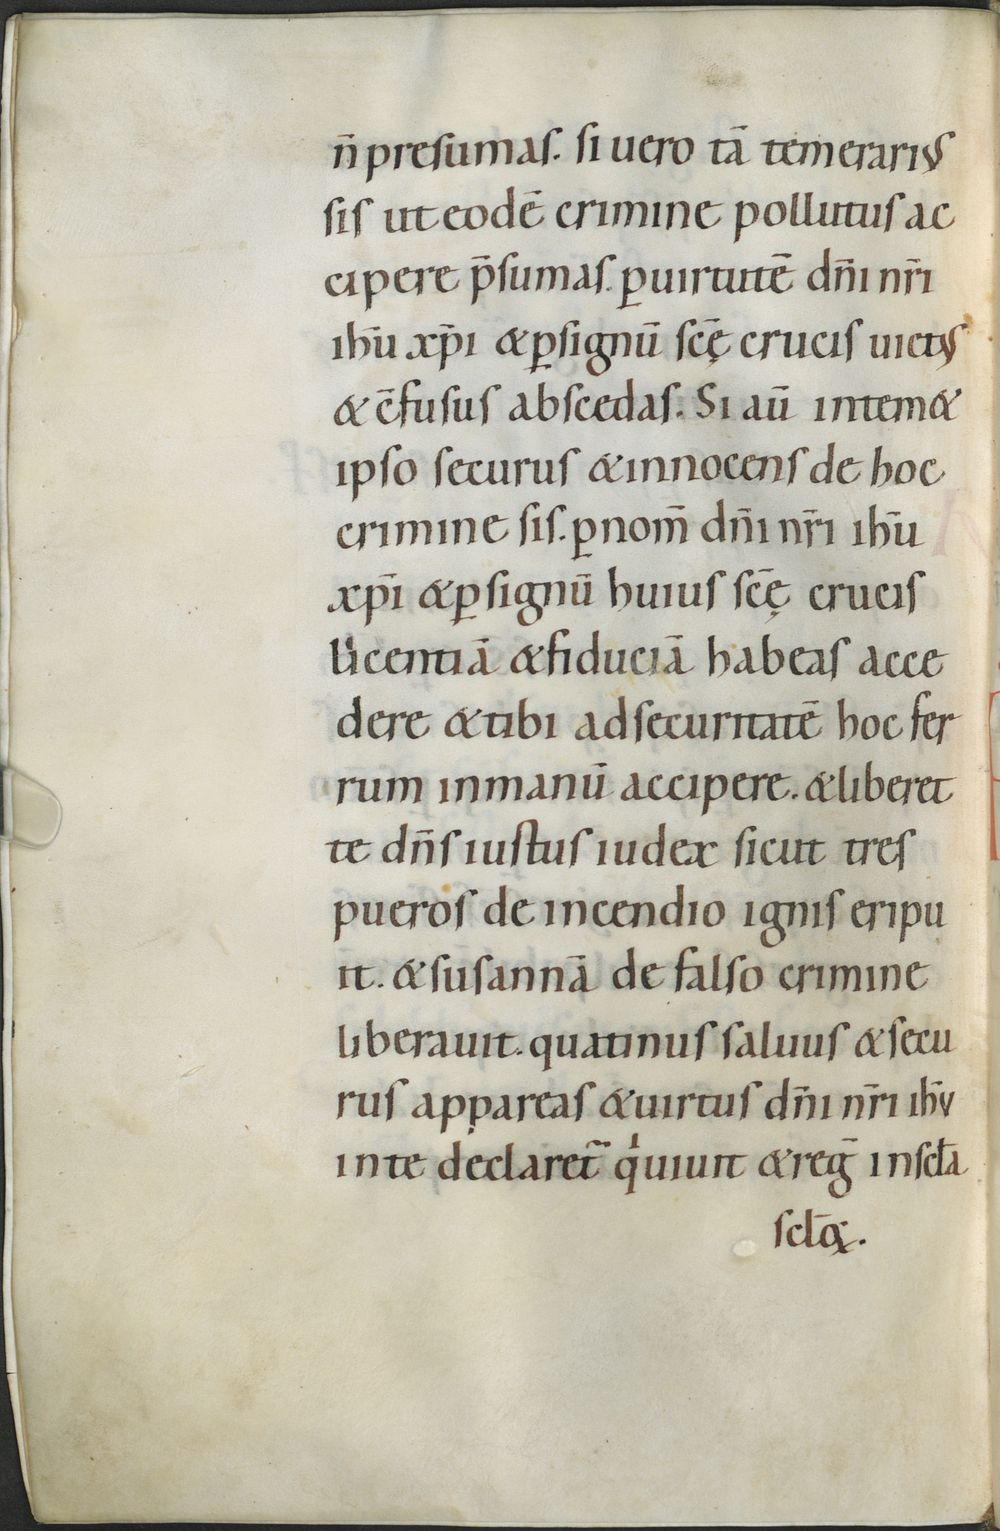 n̄ presumas. si uero tā temerarius
sis ut eodē crimine pollutus ac
cipere p̄sumas. ꝑ uirtutē dn̄i nr̄i
ihū xp̄i & ꝑ signū scę̄ crucis uictus
& c̄fusus abscedas. Si aū in tem&
ipso securus & innocens de hoc
crimine sis. ꝑ nom̄ dn̄i nr̄i ihū
xp̄i & ꝑ signū huius scę̄ crucis
licentiā & fiduciā habeas acce
dere & tibi ad securitatē hoc fer
rum in manū accipere. & liberet
te dn̄s iustus iudex sicut tres
pueros de incendio ignis eripu
it. & susannā de falso crimine
liberauit. quatinus saluus & secu
rus appareas & uirtus dn̄i nr̄i ihū
in te declaret᷑ qͥ uiuit & reḡ in scła
scłoꝝ.